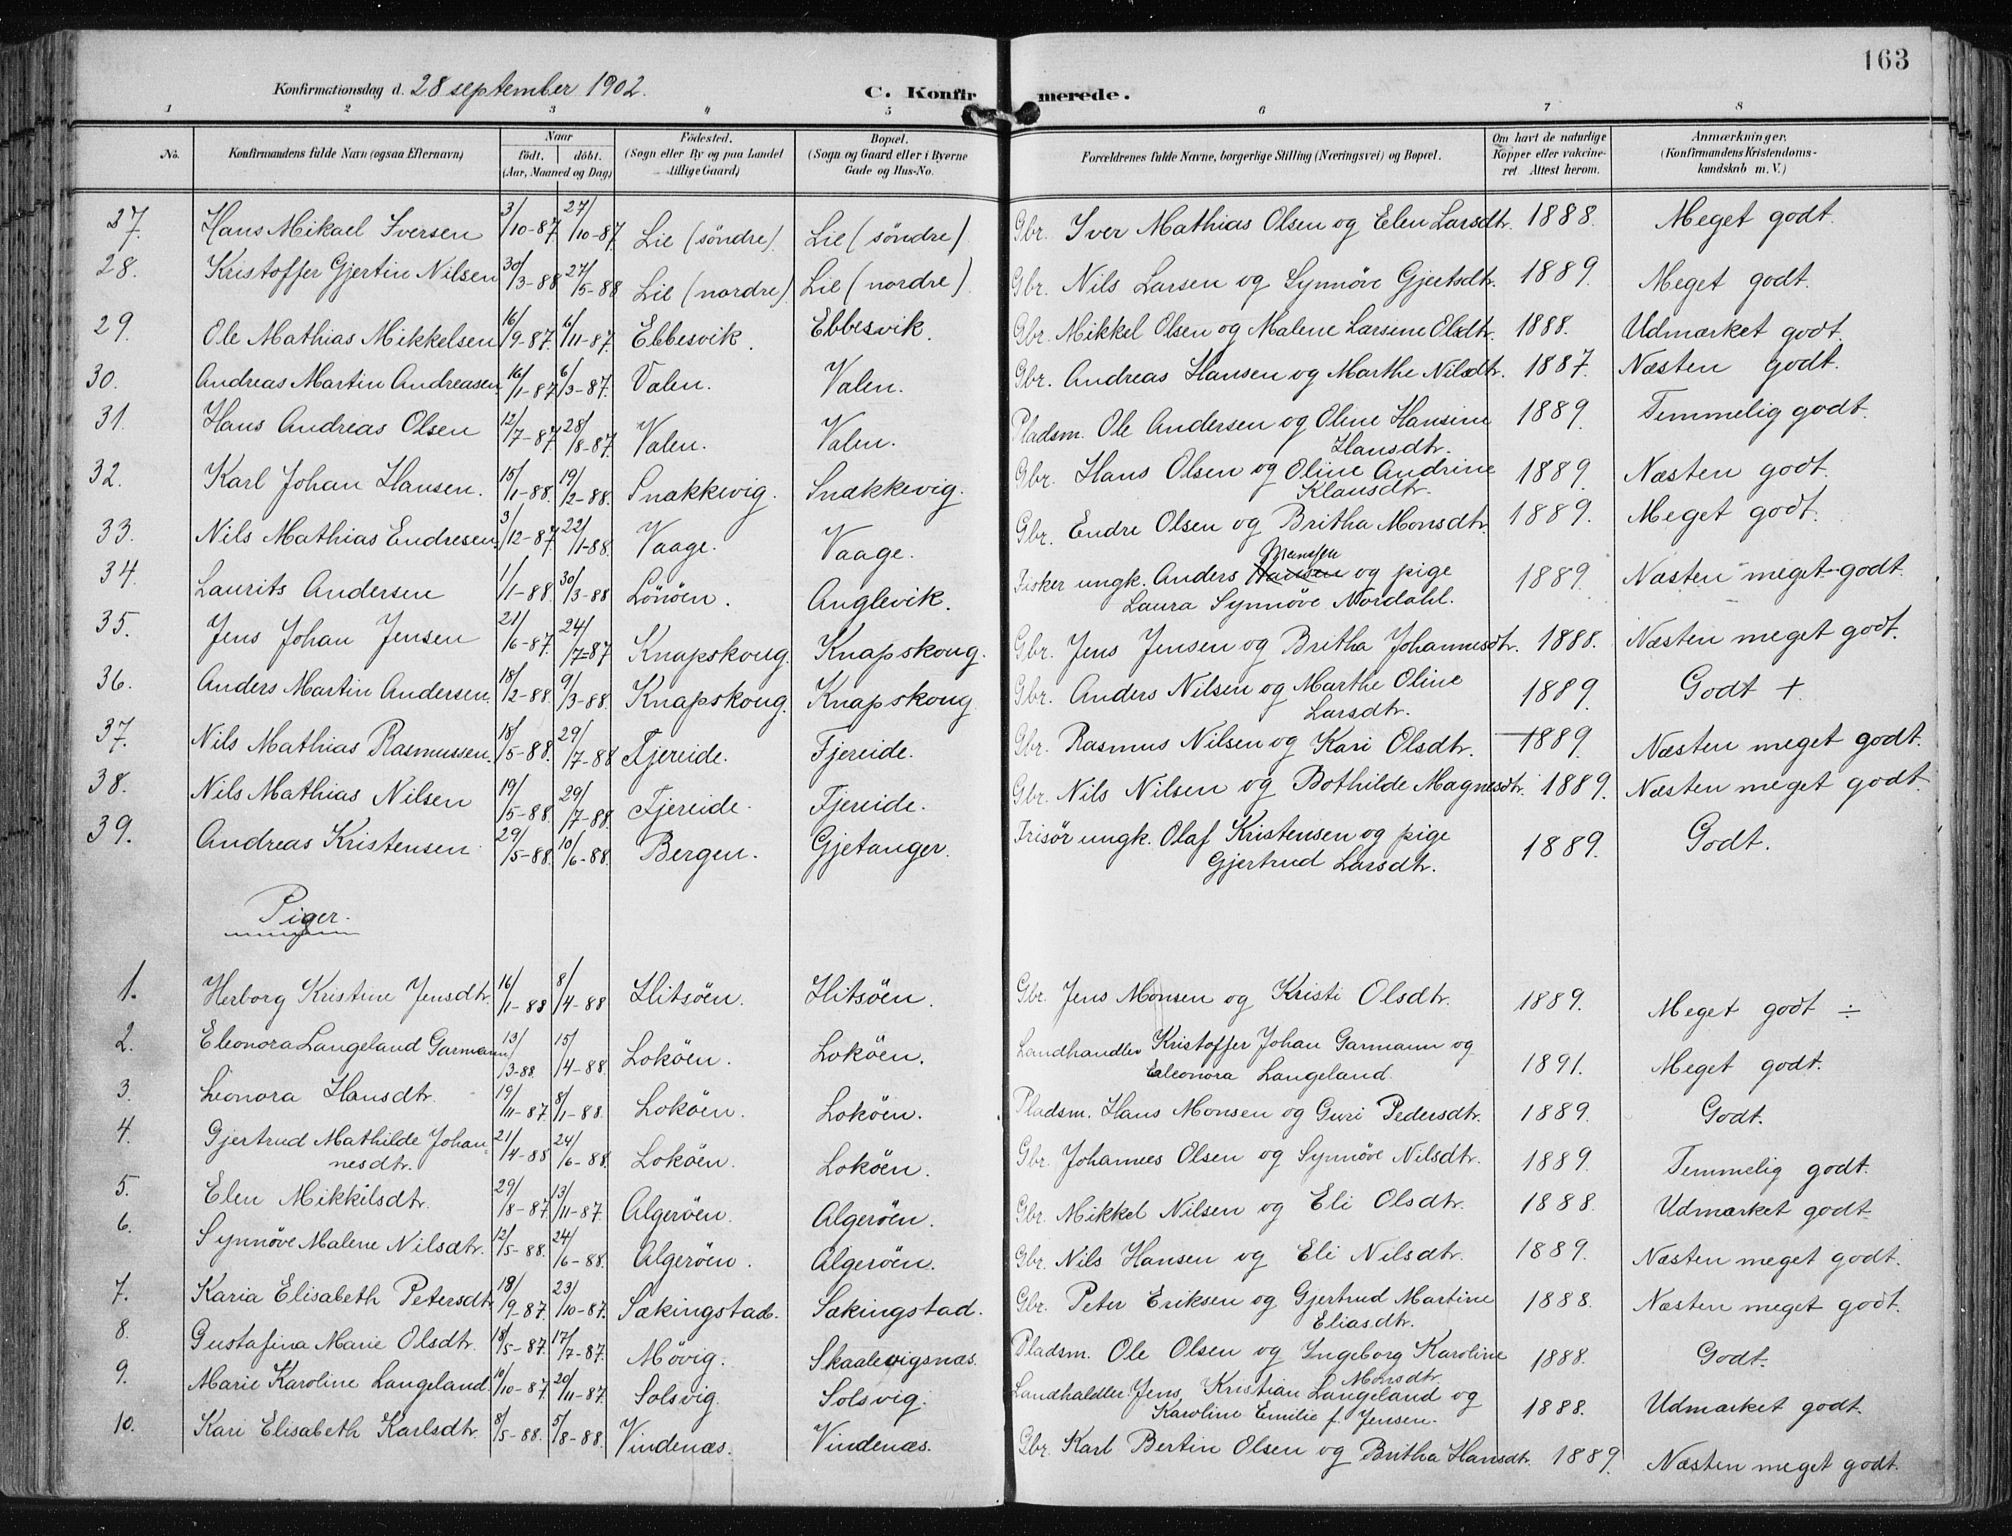 163
Konfirmationsdag d. 28 september 1902. C. Konfirmerede.
1 2 3 4 5 6 7 8
No. Konfirmandens fulde Navn (ogsaa Efternavn) Naar födt. döbt. (Aar, Maaned og Dag) Födested. (Sogn eller By og paa Landet tillige Gaard) Bopæl. (Sogn og Gaard eller i Byerne Gade og Hus-No. Forældrenes fulde Navne, borgerlige Stilling (Næringsvei) og Bopæl. Om havt de naturlige Kopper eller vakcineret. Attest herom. Anmærkninger. (Konfirmandens Kristendomskundskab m. V.)
27. Hans Mikael Iversen 3/10-87 27/10-87 Lie (söndre) Lie (söndre) Gbr. Iver Mathias Olsen og Elen Larsdtr. 1888. Meget godt.
28. Kristoffer Gjertin Nilsen 30/3-88 27/5-88 Lie (nordre) Lie (nordre) Gbr. Nils Larsen og Synnöve Gjertsdtr. 1889. Meget godt.
29. Ole Mathias Mikkelsen 16/9-87. 6/11-87. Ebbesvik. Ebbesvik. Gbr. Mikkel Olsen og Malene Larsine Olsdtr. 1888. Udmærket godt.
30. Andreas Martin Andreasen 16/1-87 6/3-87. Valen. Valen. Gbr. Andreas Hansen og Marthe Nilsdtr. 1887. Næsten godt.
31. Hans Andreas Olsen 12/7-87 28/8-87. Valen. Valen. Pladsm. Ole Andersen og Oline Hansine Hansdtr. 1889. Temmelig godt.
32. Karl Johan Hansen. 15/1-88. 19/2-88. Snækkevig. Snækkevig. Gbr. Hans Olsen og Oline Andrine Klausdtr. 1889. Næsten godt.
33. Nils Mathias Endresen. 3/12-87 22/1-88. Vaage. Vaage. Gbr. Endre Olsen og Britha Monsdtr. 1889. Meget godt.
34. Laurits Andersen 1/1-88. 30/3-88 Lönöen. Anglevik. Fisker ungk. Anders Hansen Monssen og pige Laura Synnöve Nordahl. 1889. Næsten meget godt.
35. Jens Johan Jensen 21/6-87. 24/7-87 Knapskoug. Knapskoug. Gbr. Jens Jensen og Britha Johannesdtr. 1888. Næsten meget godt.
36. Anders Martin Andersen. 18/2-88. 9/3-88. Knapskoug. Knapskoug Gbr. Anders Nilsen og Marthe Oline Larsdtr. 1889. Godt +
37. Nils Mathias Rasmussen. 18/5-88. 29/7-88 Fjereide. Fjereide. Gbr. Rasmus Nilsen og Kari Olsdtr. 1889. Næsten meget godt.
38. Nils Mathias Nilsen 19/5-88. 29/7-88. Fjereide. Fjereide. Gbr. Nils Nilsen og Bothilde Magnesdtr. 1889. Næsten meget godt.
39. Andreas Kristensen 29/5-88. 10/6-88. Bergen. Gjetanger. Frisör ungk. Olaf Kristensen og pige Gjertrud Larsdtr. 1889. Godt.
Piger.
1. Herborg Kristine Jensdtr. 16/1-88 8/4-88 Hitsöen. Hitsöen. Gbr. Jens Monsen og Kristi Olsdtr. 1889. Meget godt ÷
2. Eleonora Langeland Garmann 13/3-88. 15/4-88. Loköen. Loköen. Landhandler Kristoffer Johan Garmann og Eleonora Langeland. 1891. Meget godt.
3. Leonora Hansdtr. 19/11-87 8/1-88. Loköen. Loköen. Pladsm. Hans Monsen og Guri Pedersdtr. 1889. Godt.
4. Gjertrud Mathilde Johannesdtr. 21/4-88 24/6-88. Loköen. Loköen. Gbr. Johannes Olsen og Synnöve Nilsdtr. 1889. Temmelig godt.
5. Elen Mikkilsdtr. 29/8-87 13/11-87. Algeröen. Algeröen. Gbr. Mikkel Nilsen og Eli Olsdtr. 1888. Udmærket godt.
6. Synnöve Malene Nilsdtr. 12/5-88. 24/6-88. Algeröen. Algeröen. Gbr. Nils Hansen og Eli Nilsdtr. 1889. Næsten meget godt.
7. Karia Elisabeth Petersdtr. 18/9-87. 23/10-87. Sækingstad. Sækingstad. Gbr. Peter Eriksen og Gjertrud Martine Eliasdtr. 1888. Næsten meget godt.
8. Gustafina Marie Olsdtr. 18/5-87. 17/7-87. Mövig. Skaalevigsnæs. Pladsm. Ole Olsen og Ingeborg Karoline Monsdtr. 1888. Godt.
9. Marie Karoline Langeland. 10/10-87 20/11-87. Solsvig. Solsvig. Landhaldler Jens Kristian Langeland og Karoline Emilie f. Jensen. 1888. Udmærket godt.
10. Kari Elisabeth Karlsdtr. 8/5-88. 5/8-88. Vindenæs. Vindenæs. Gbr. Karl Bertin Olsen og Britha Hansdtr. 1889. Næsten meget godt.